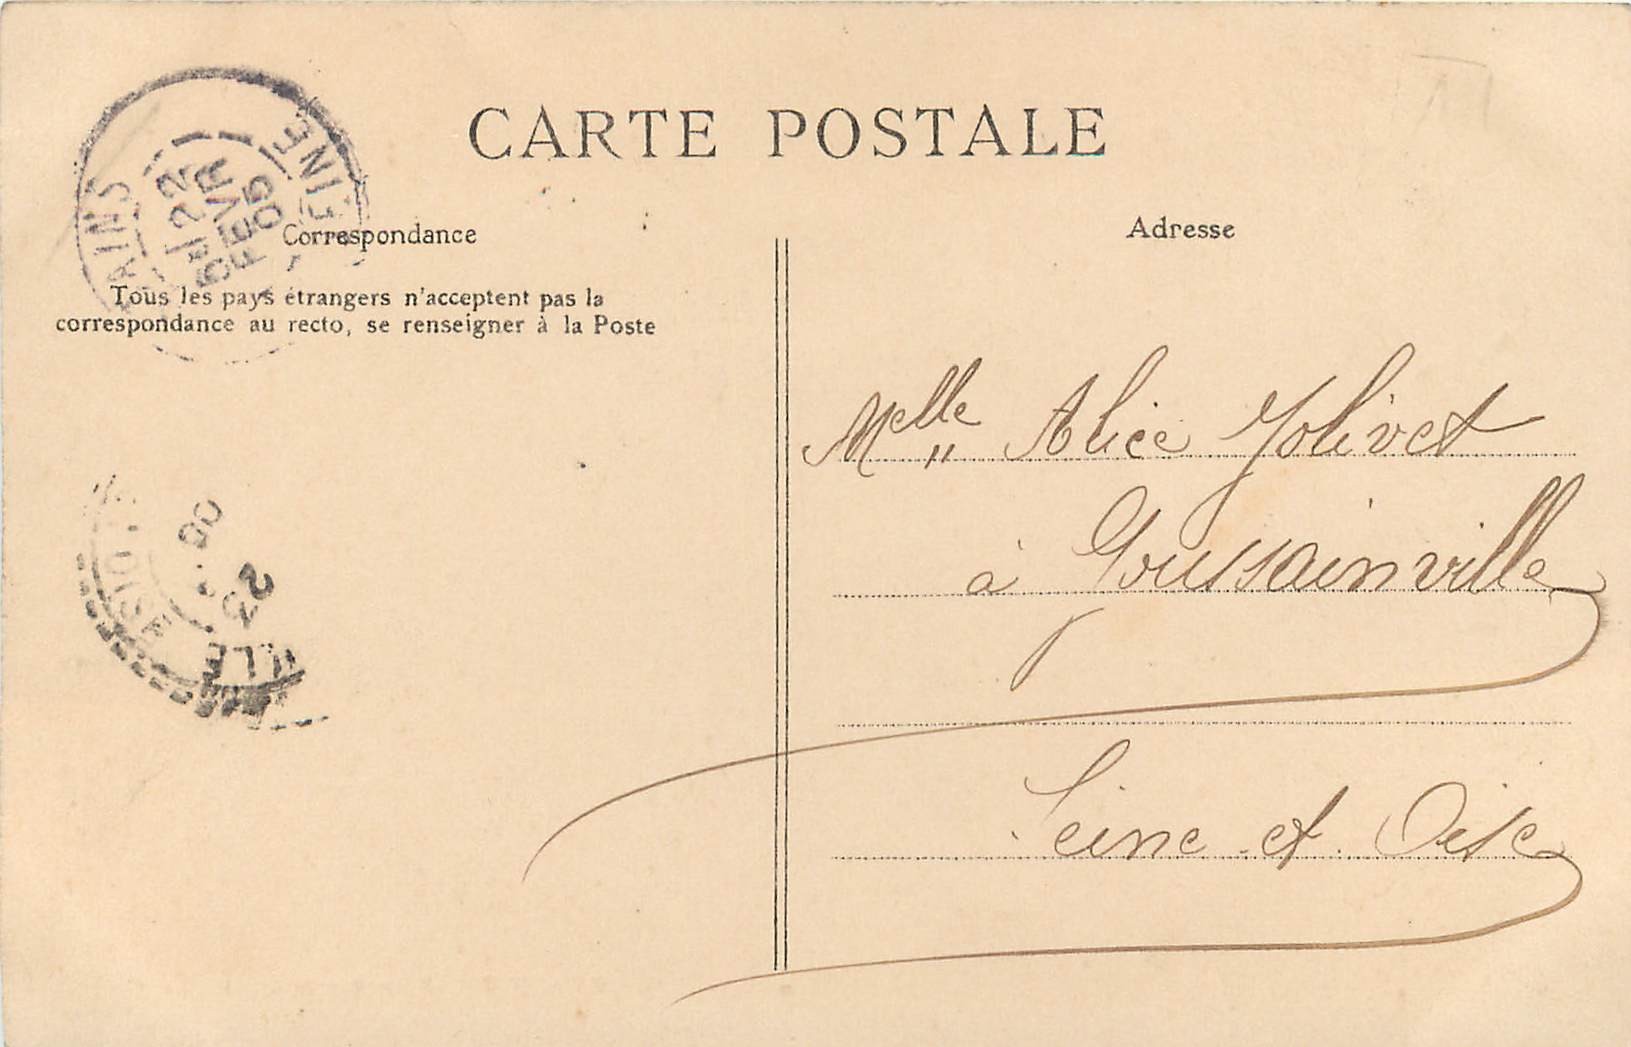 CARTE POSTALE
Correspondance
Tous les pays étrangers n'acceptent pas la
correspondance au recto, se renseigner à la Poste
Adresse
Melle Alice Jolivet
à Goussainville
Seine et Oise
22
FEVR
05
23